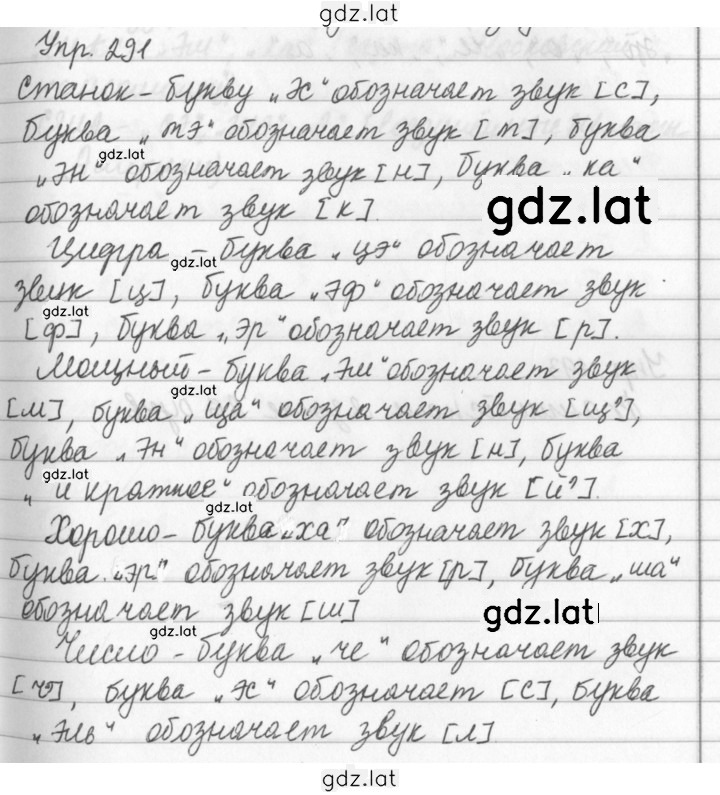 gdz.lat
Упр. 291
Станок – букву „Эс“ обозначает звук [с],
буква „тэ“ обозначает звук [т], буква
gdz.lat
„Эн“ обозначает звук [н], буква „ка“
обозначает звук [к].
gdz.lat
Цифра – буква „цэ“ обозначает
gdz.lat
звук [ц], буква „Эф“ обозначает звук
gdz.lat
[ф], буква „Эр“ обозначает звук [р].
Мощный – буква „Эм“ обозначает звук
gdz.lat
[м], буква „ща“ обозначает звук [щ'],
буква „Эн“ обозначает звук [н], буква
gdz.lat
„и краткое“ обозначает звук [й'].
gdz.lat
Хорошо – буква „ха“ обозначает звук [х],
буква „эр“ обозначает звук [р], буква „ша“
обозначает звук [ш]
gdz.lat
gdz.lat
Число – буква „че“ обозначает звук
[ч'], буква „Эс“ обозначает [с], буква
„Эль“ обозначает звук [л]
gdz.lat